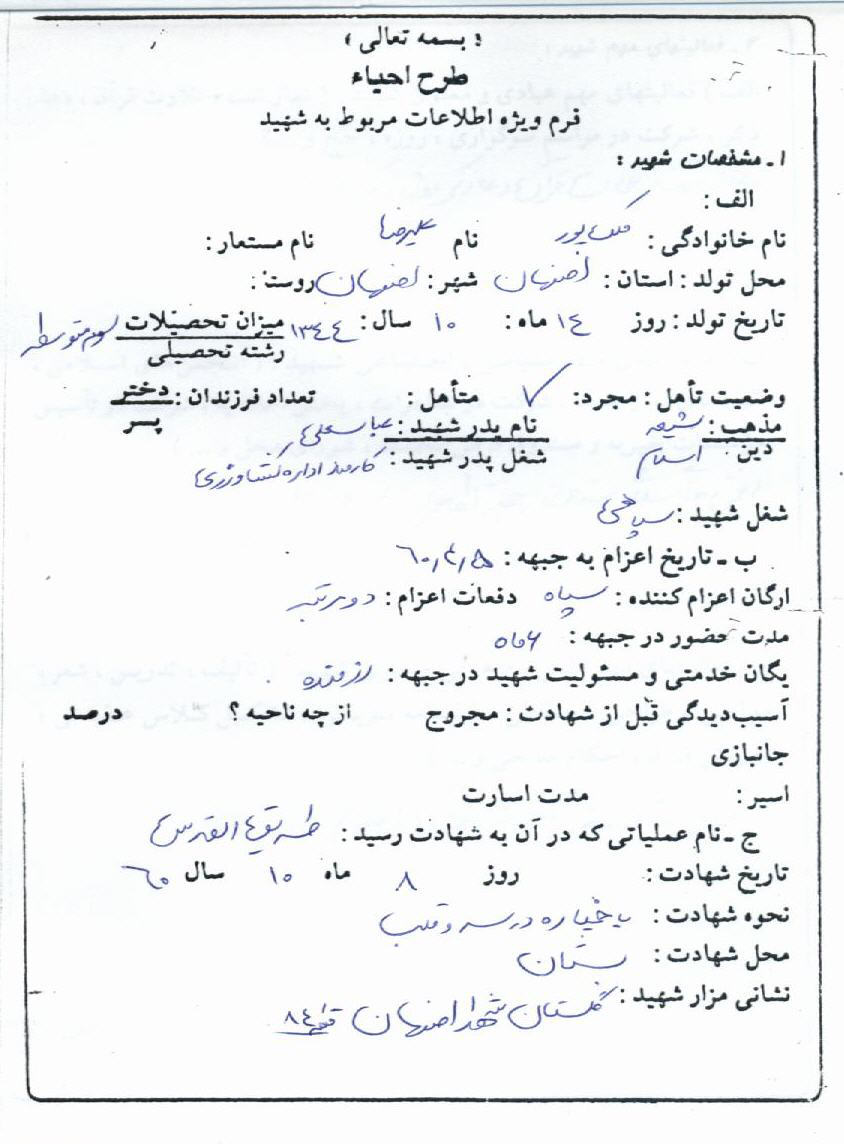 ﴿ بسمه تعالی ﴾
طرح احیاء
فرم ویژه اطلاعات مربوط به شهید
۱ـ مشخصات شهید :
الف :
نام خانوادگی : ملک پور نام علیرضا نام مستعار :
محل تولد : استان : اصفهان شهر : اصفهان روستا :
تاریخ تولد : روز ۱۴ ماه : ۱۰ سال : ۱۳۴۴ میزان تحصیلات سوم متوسطه
رشته تحصیلی
وضعیت تأهل : مجرد : ✓ متأهل : تعداد فرزندان : دختر
پسر
مذهب : شیعه نام پدر شهید : عباسعلی
دین : اسلام شغل پدر شهید : کارمند اداره کشاورزی
شغل شهید : سپاهی
ب ـ تاریخ اعزام به جبهه : ۶۰/۴/۵
ارگان اعزام کننده : سپاه دفعات اعزام : دو مرتبه
مدت حضور در جبهه : ۶ ماه
یگان خدمتی و مسئولیت شهید در جبهه : رزمنده
آسیب‌دیدگی قبل از شهادت : مجروح از چه ناحیه ؟ درصد
جانبازی
اسیر : مدت اسارت
ج ـ نام عملیاتی که در آن به شهادت رسید : طریق القدس
تاریخ شهادت : روز ۸ ماه ۱۰ سال ۶۰
نحوه شهادت : با خمپاره در سر و قلب
محل شهادت : بستان
نشانی مزار شهید : گلستان شهدا اصفهان قطعه ۸۴